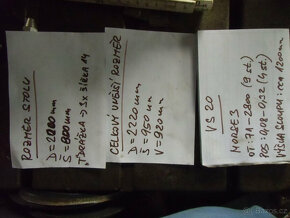 ROZMĚR STOLU
D = 2000mm
Š = 800mm
T DRÁŽKA → 3x ŠÍŘKA 14
CELKOVÝ VNĚJŠÍ ROZMĚR
D = 2220mm
Š = 950mm
V = 920mm
VS 20
MORSE 3
OT: 71-2800 (9 st.)
POS: 0,08-0,32 (4 st.)
VÝŠKA SLOUPU: cca 1200mm